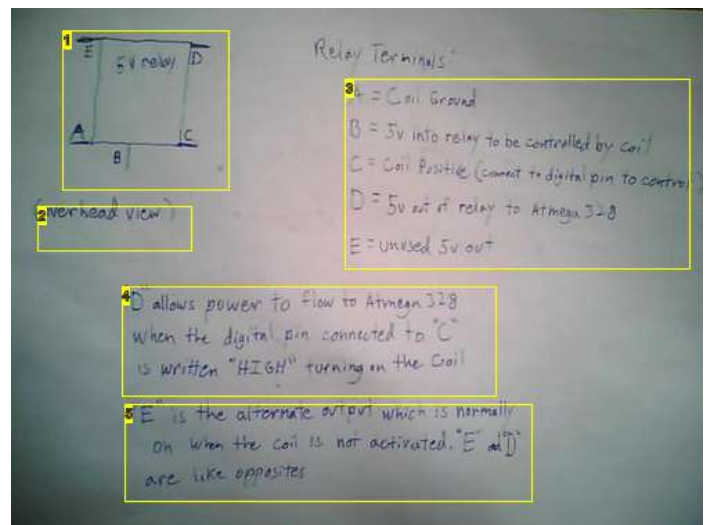 E
5v relay
D
A
C
B
(overhead view)
Relay Terminals:
A = Coil Ground
B = 5v into relay to be controlled by coil
C = Coil Positive (connect to digital pin to control)
D = 5v out of relay to Atmega 328
E = unused 5v out
"D" allows power to flow to Atmega 328
when the digital pin connected to "C"
is written "HIGH" turning on the Coil
"E" is the alternate output which is normally
on when the coil is not activated. "E" and "D"
are like opposites
1
2
3
4
5